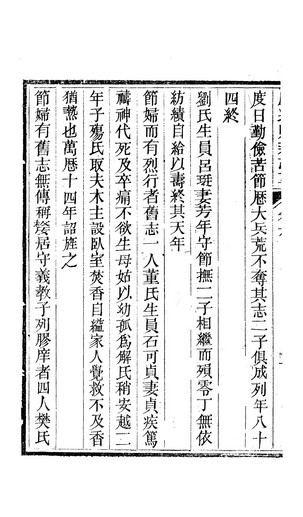 度日勤儉苦節曆大兵荒不奪其志二子俱成列年八十
四終
劉氏生員呂珽妻芳年守節撫二子相繼而殞零丁無依
紡績自給以壽終其天年
節婦而有烈行者舊志一人董氏生員石可貞妻貞疾篤
禱神代死及卒痛不欲生母姑以幼孤爲解氏稍安越二
年子殤氏取夫木主設臥室焚香自縊家人覺救不及香
猶爇也萬曆十四年詔旌之
節婦有舊志無傳稱嫠居守義教子列膠庠者四人樊氏